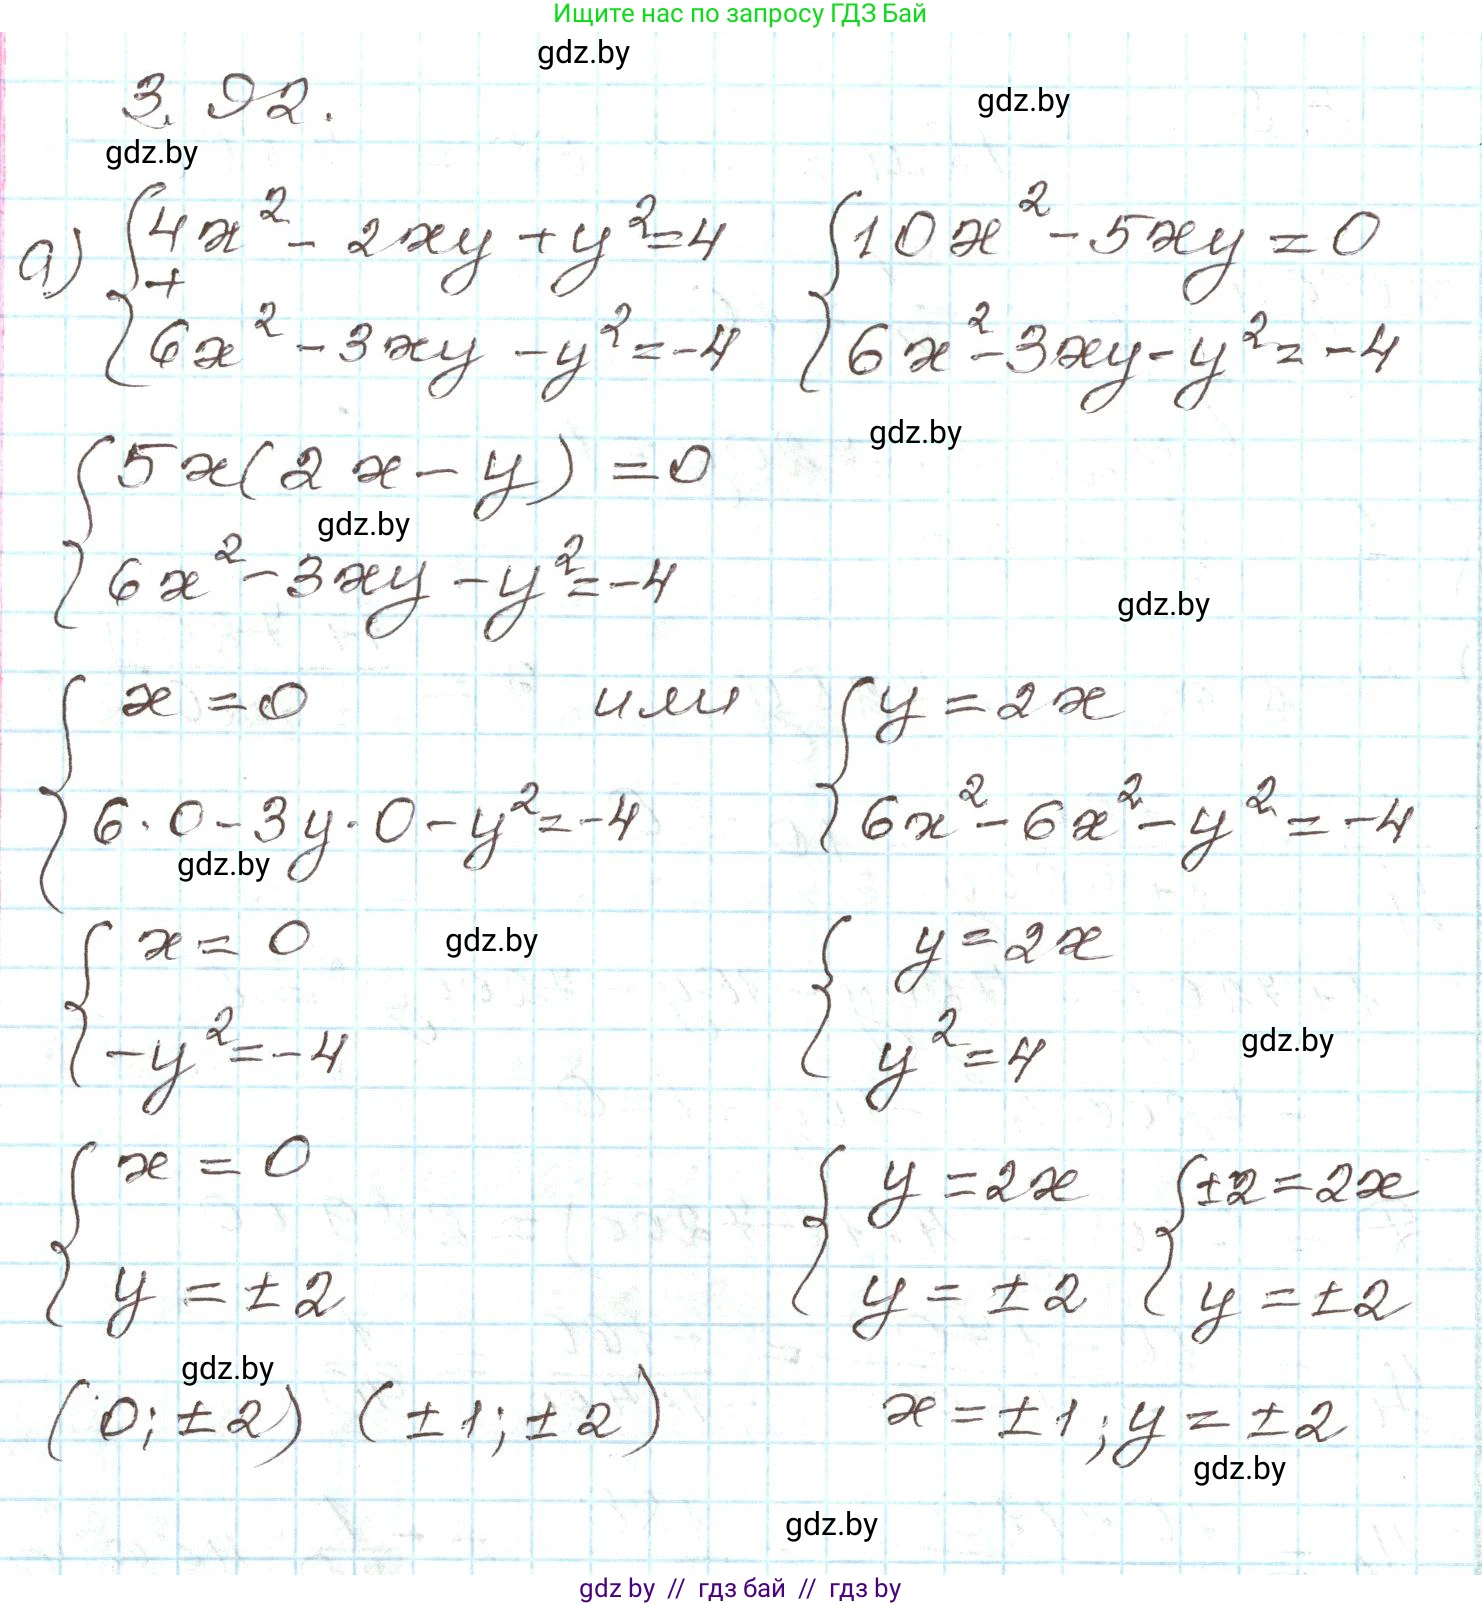 Ищите нас по запросу ГДЗ Бай
gdz.by
3.92.
gdz.by
gdz.by
а) { 4x² - 2xy + y² = 4 { 10x² - 5xy = 0
+
6x² - 3xy - y² = -4 6x² - 3xy - y² = -4
gdz.by
{ 5x(2x - y) = 0
gdz.by
6x² - 3xy - y² = -4
gdz.by
{ x = 0 или { y = 2x
6·0 - 3y·0 - y² = -4 6x² - 6x² - y² = -4
gdz.by
{ x = 0 { y = 2x
gdz.by
-y² = -4 y² = 4
gdz.by
{ x = 0 { y = 2x { ±2 = 2x
y = ±2 y = ±2 y = ±2
gdz.by
(0; ±2) (±1; ±2) x = ±1; y = ±2
gdz.by
gdz.by
gdz by // гдз бай // гдз by